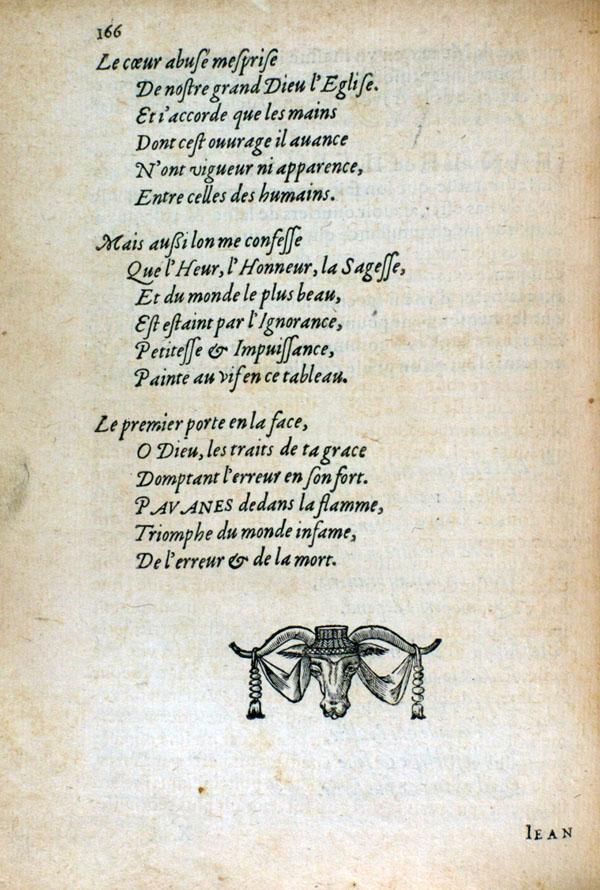 166
Le cœur abusé mesprise
De nostre grand Dieu l'Eglise.
Et i'accorde que les mains
Dont cest ouurage il auance
N'ont vigueur ni apparence,
Entre celles des humains.
Mais aussi lon me confesse
Que l'Heur, l'Honneur, la Sagesse,
Et du monde le plus beau,
Est estaint par l'Ignorance,
Petitesse & Impuissance,
Painte au vif en ce tableau.
Le premier porte en la face,
O Dieu, les traits de ta grace
Domptant l'erreur en son fort.
PAVANES dedans la flamme,
Triomphe du monde infame,
De l'erreur & de la mort.
IEAN